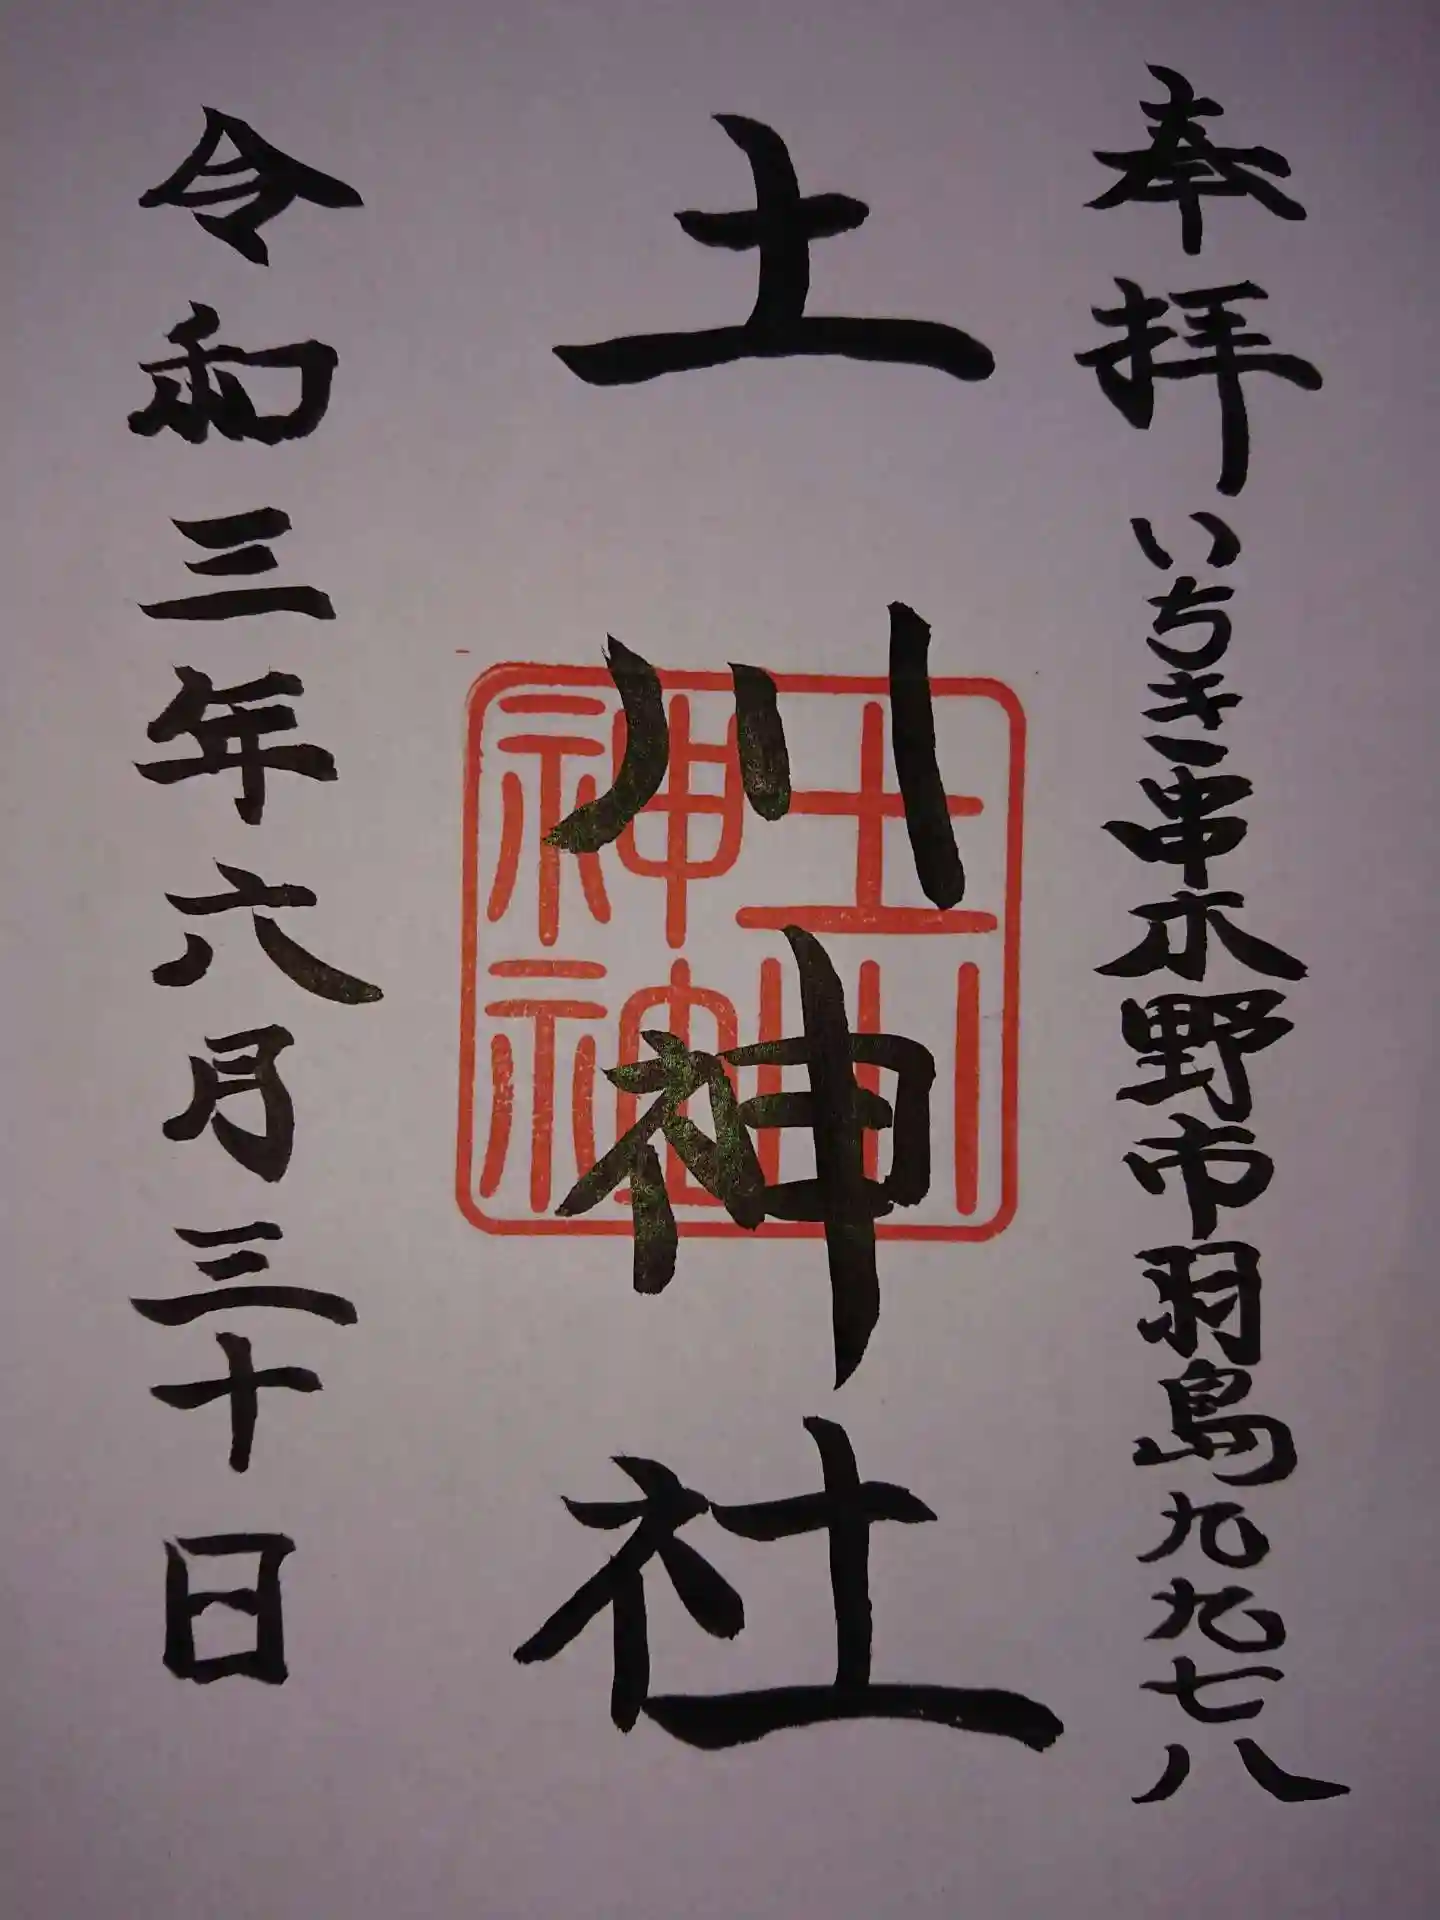 奉拝 いちき串木野市羽島九九七八
土川神社
土川神社
令和三年六月三十日